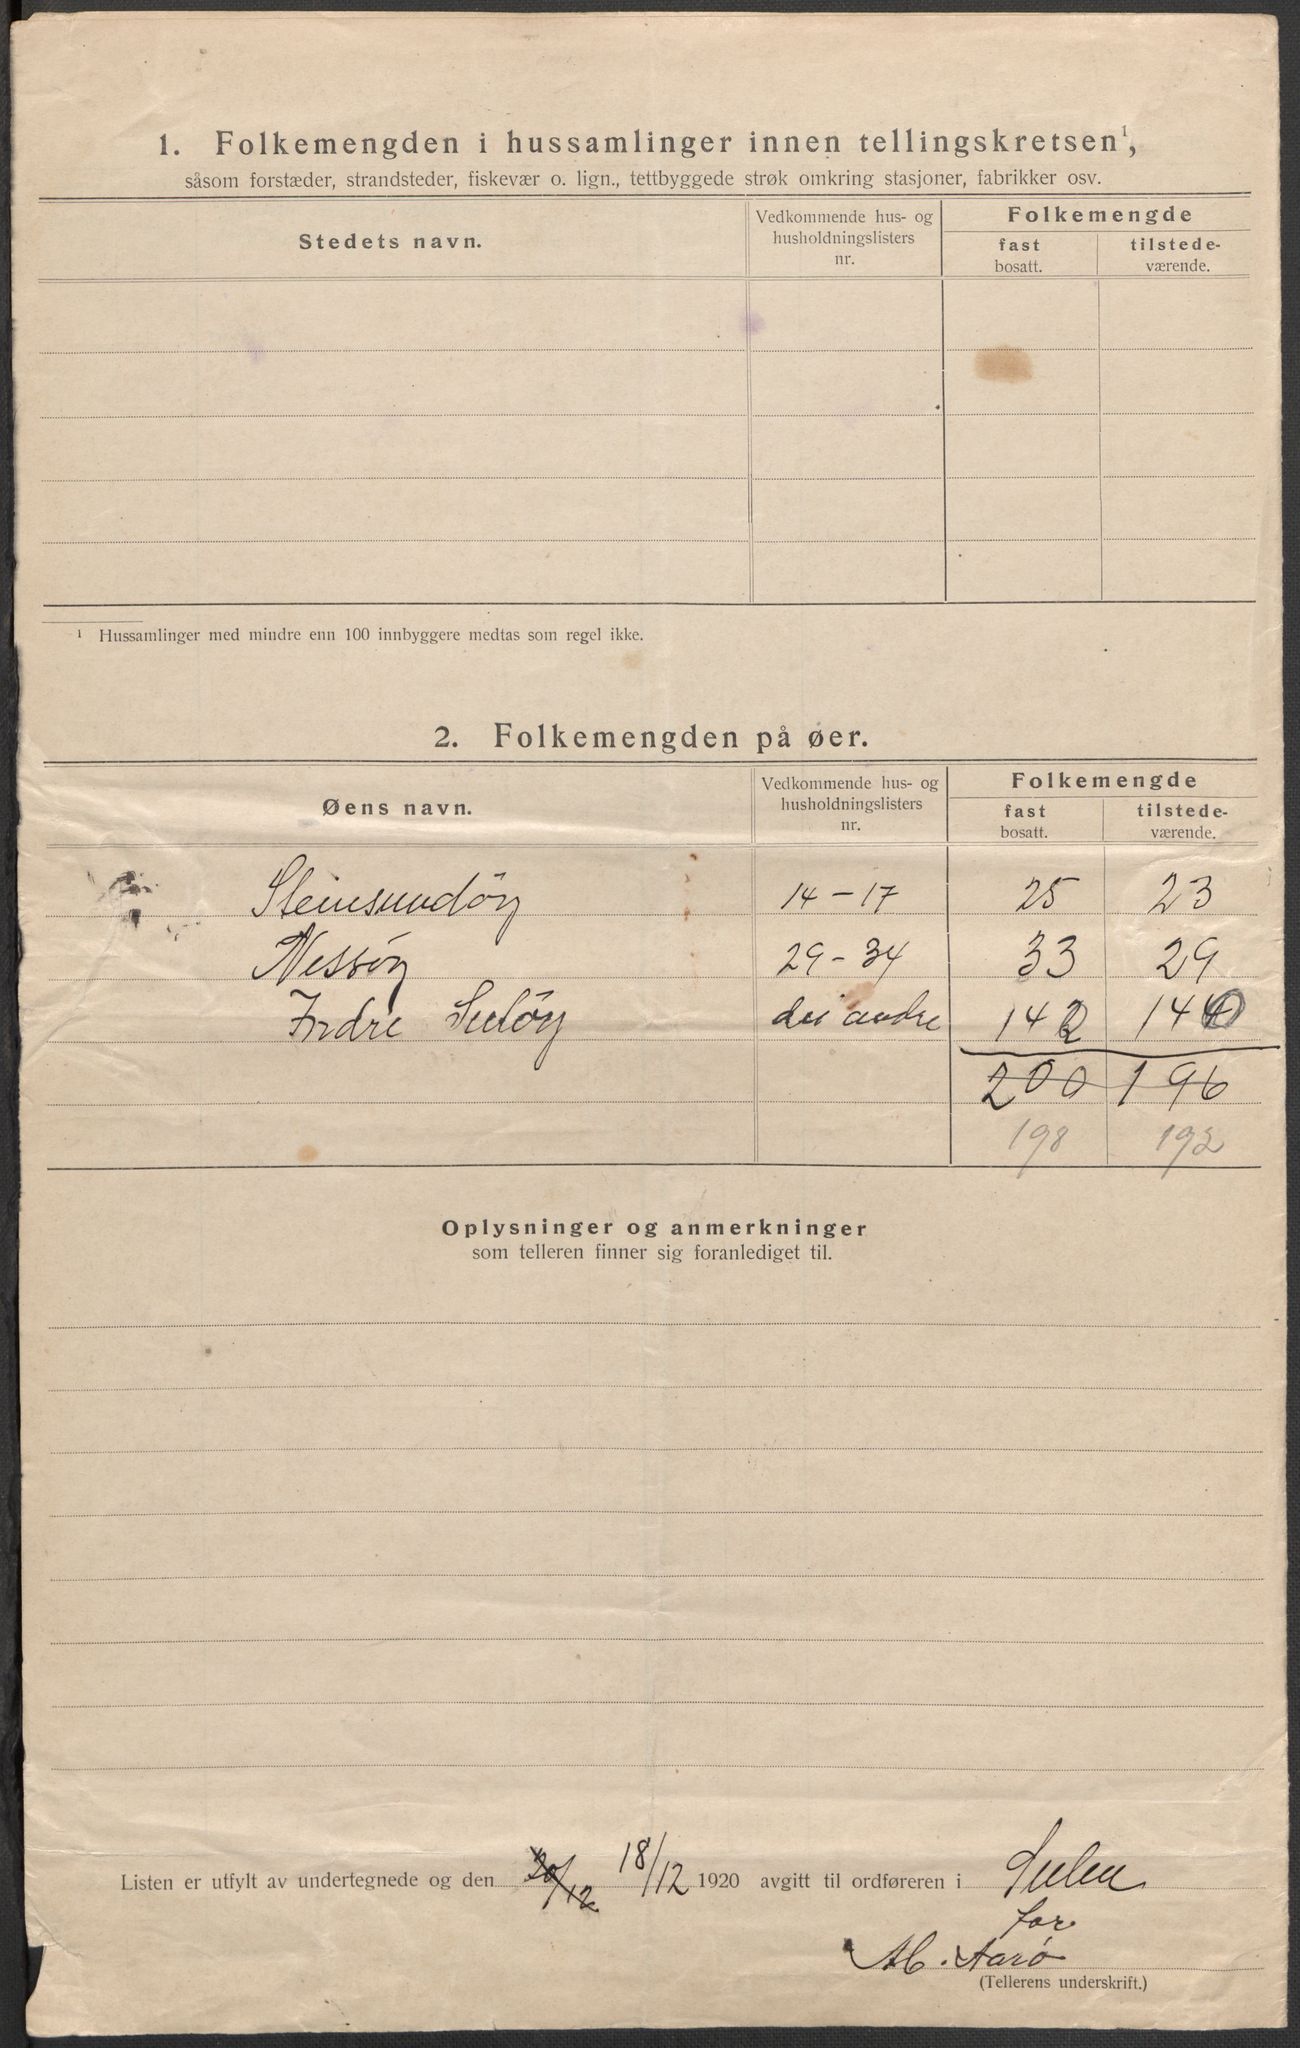 1. Folkemengden i hussamlinger innen tellingskretsen¹,
såsom forstæder, strandsteder, fiskevær o. lign., tettbyggede strøk omkring stasjoner, fabrikker osv.
Stedets navn. Vedkommende hus- og husholdningslisters nr. Folkemengde
fast bosatt. tilstede-værende.
¹ Hussamlinger med mindre enn 100 innbyggere medtas som regel ikke.
2. Folkemengden på øer.
Øens navn. Vedkommende hus- og husholdningslisters nr. Folkemengde
fast bosatt. tilstede-værende.
Steinsundöy 14 - 17 25 23
Nessöy 29 - 34 33 29
Indre Sulöy dei andre 142 140
200 196
198 192
Oplysninger og anmerkninger
som telleren finner sig foranlediget til.
Listen er utfylt av undertegnede og den 20/12 18/12 1920 avgitt til ordføreren i Sulen
for
Aarö
(Tellerens underskrift.)